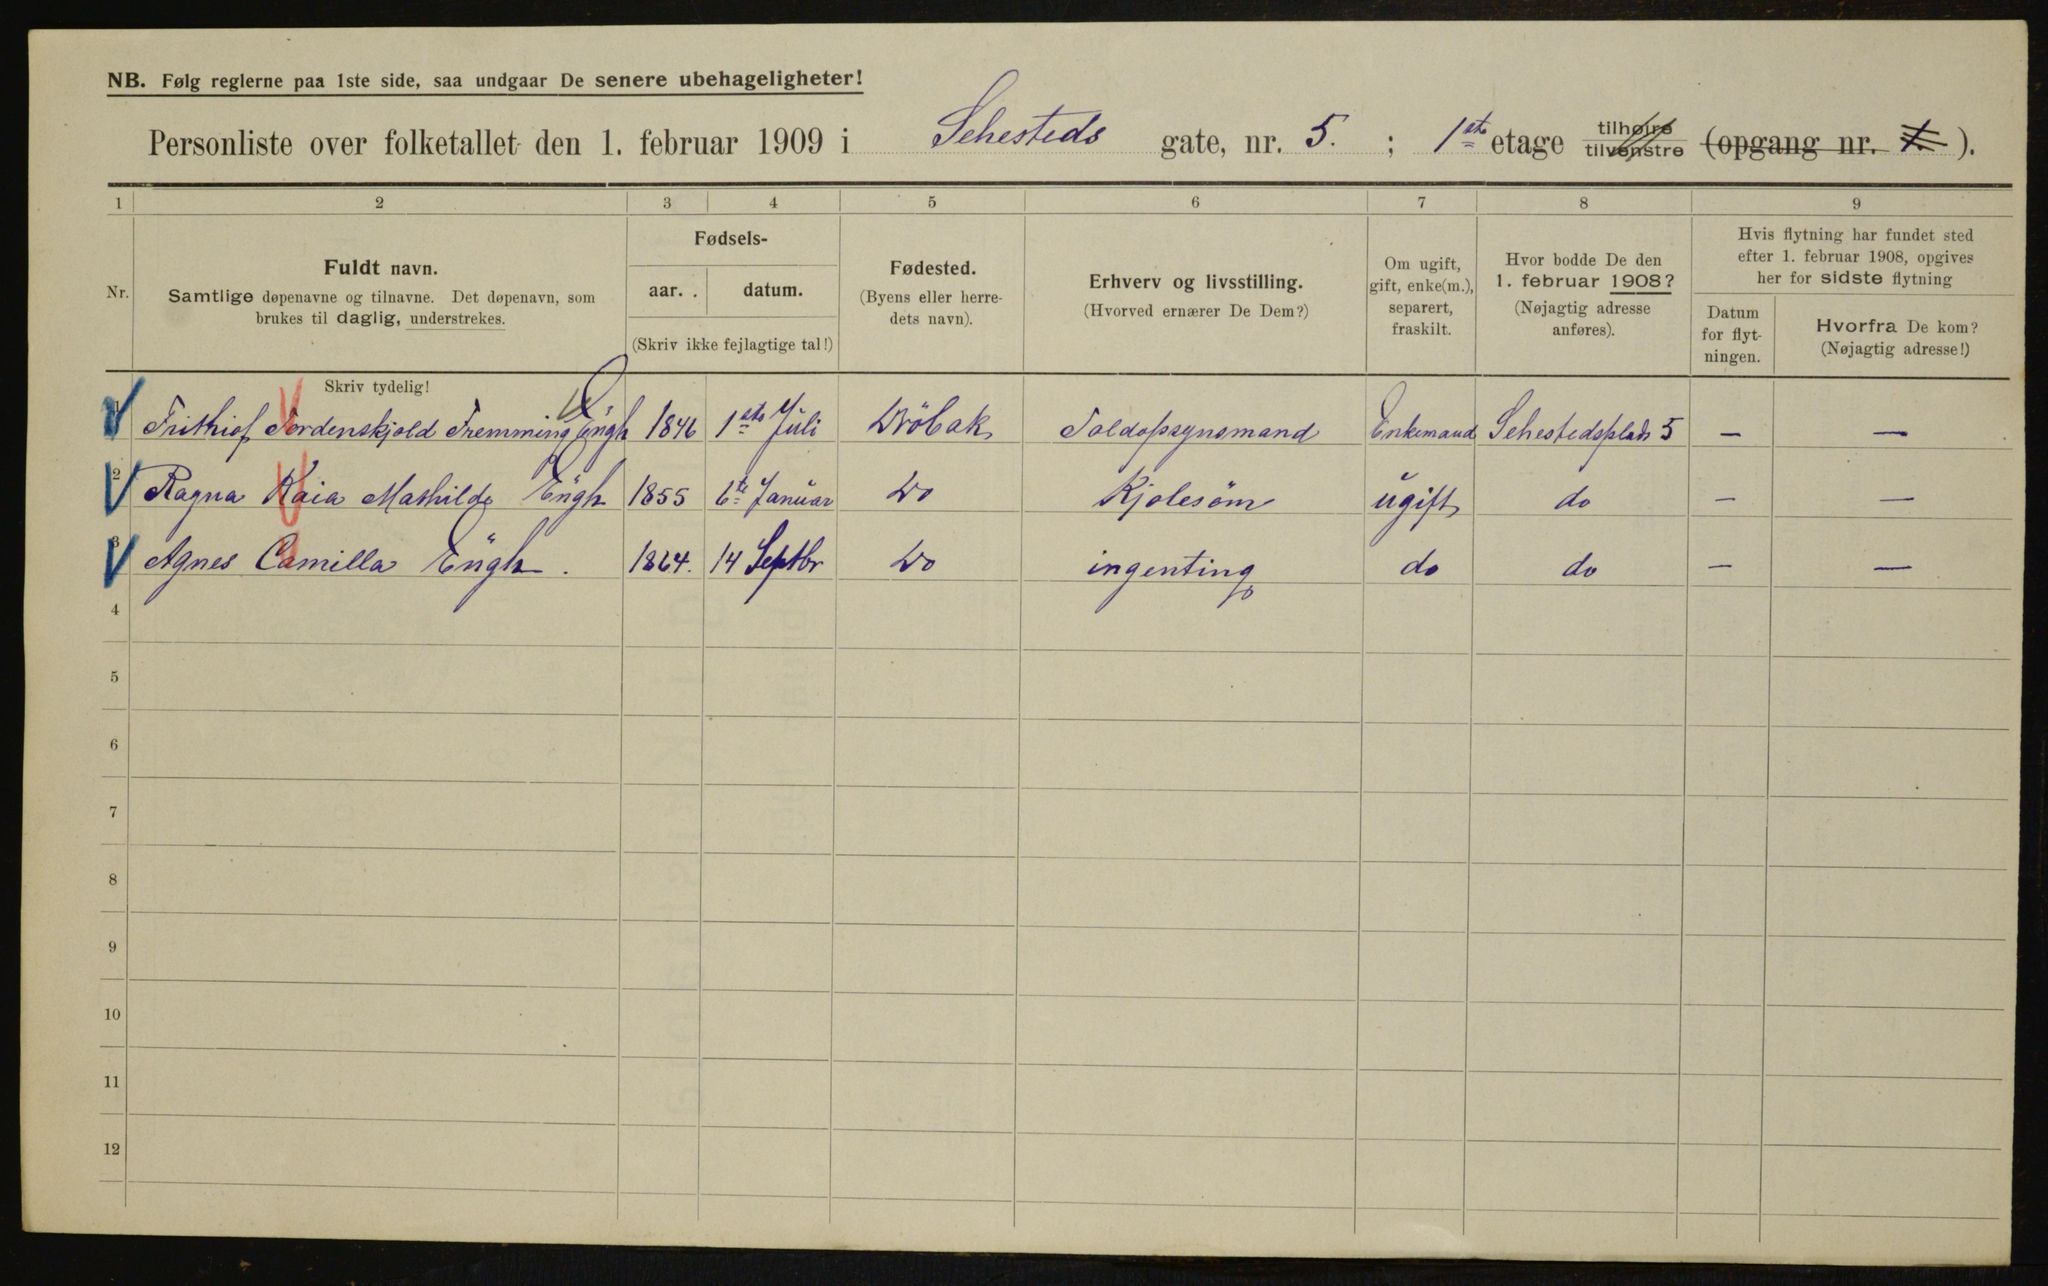 NB. Følg reglerne paa 1ste side, saa undgaar De senere ubehageligheter!
Personliste over folketallet den 1. februar 1909 i Sehesteds gate, nr. 5. ; 1ste etage tilhøire tilvenstre (opgang nr. 1. ).
1 2 3 4 5 6 7 8 9
Nr.
Fuldt navn.
Samtlige døpenavne og tilnavne. Det døpenavn, som
brukes til daglig, understrekes.
Skriv tydelig!
Fødsels-
aar. . datum.
(Skriv ikke fejlagtige tal!)
Fødested.
(Byens eller herre-
dets navn).
Erhverv og livsstilling.
(Hvorved ernærer De Dem?)
Om ugift,
gift, enke(m.),
separert,
fraskilt.
Hvor bodde De den
1. februar 1908?
(Nøjagtig adresse
anføres).
Hvis flytning har fundet sted
efter 1. februar 1908, opgives
her for sidste flytning
Datum
for flyt-
ningen.
Hvorfra De kom?
(Nøjagtig adresse!)
1 Frithiof Tordenskjold Fremming Engh 1846 1ste Juli Dröbak Toldopsynsmand Enkemand Sehestedsplads 5 — —
2 Ragna Kaia Mathilde Engh 1855 6te Januar Do Kjolesöm ugift do — —
3 Agnes Camilla Engh . 1864. 14 Septbr Do ingenting do do — —
4
5
6
7
8
9
10
11
12